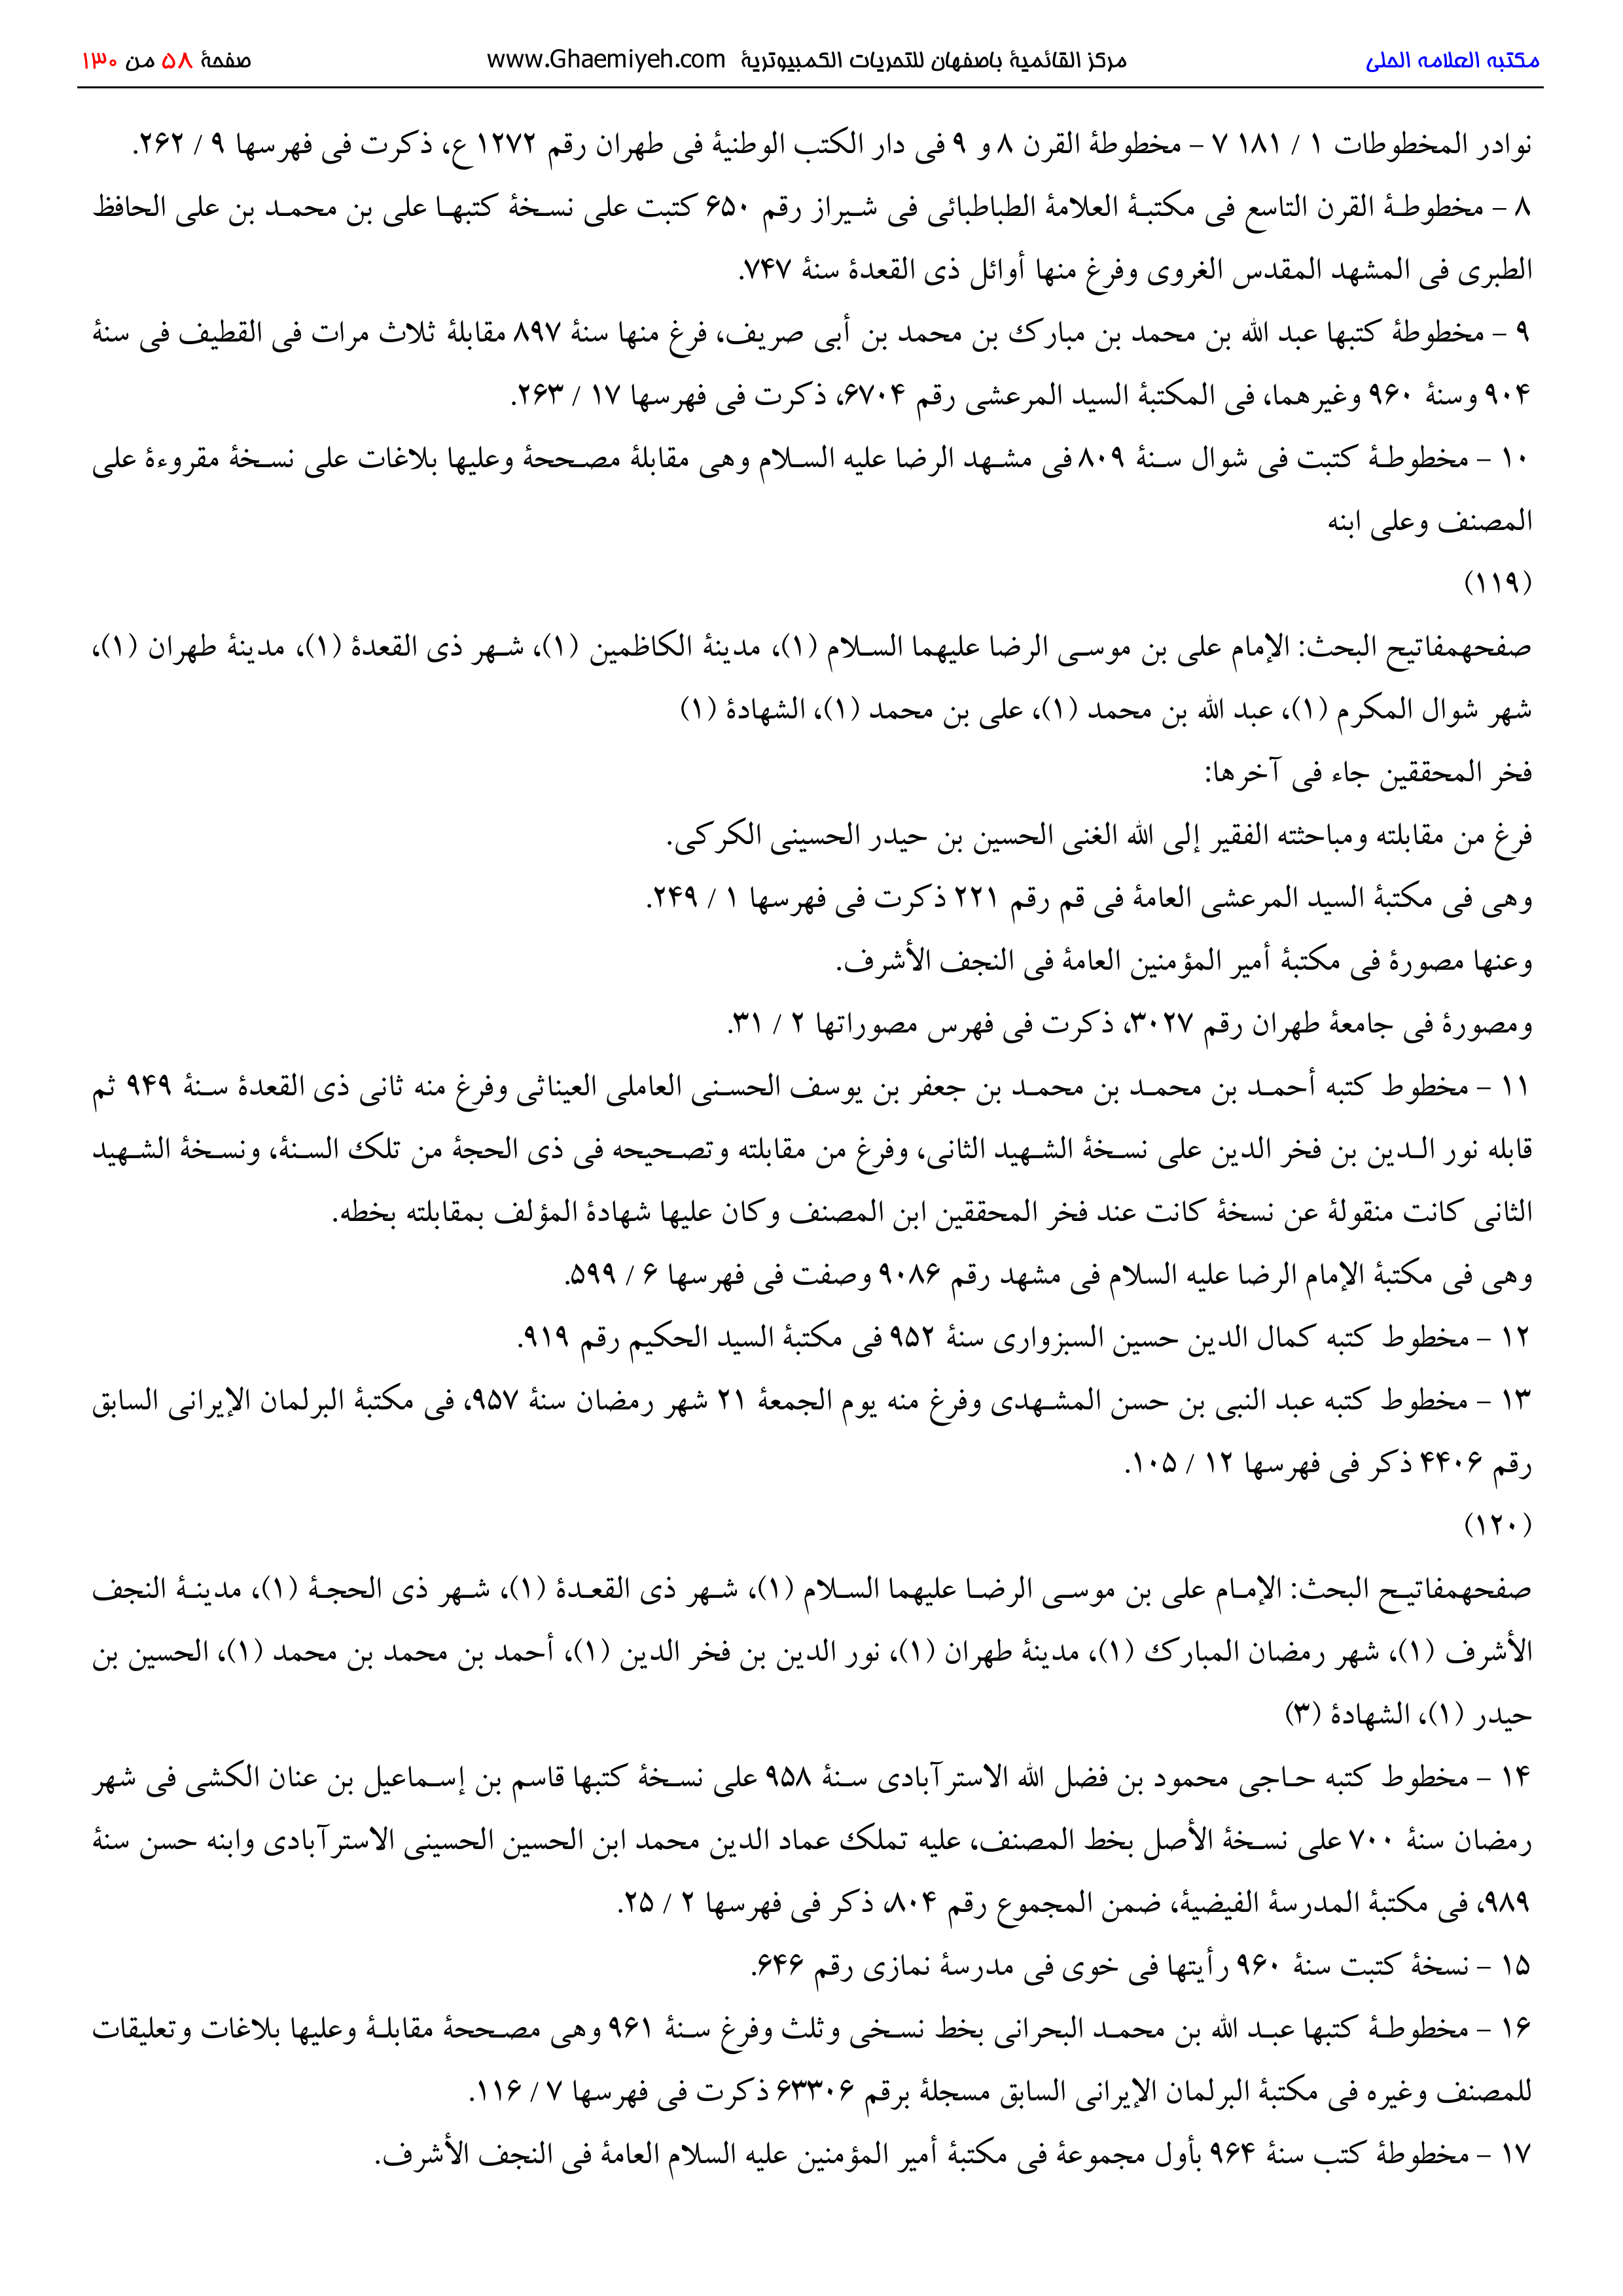 مكتبه العلامه الحلى مركز القائمیهٔ باصفهان للتحریات الکمبیوتریهٔ www.Ghaemiyeh.com صفحهٔ ۵۸ من ۱۳۰
نوادر المخطوطات ۱ / ۱۸۱ ۷ – مخطوطهٔ القرن ۸ و ۹ فی دار الکتب الوطنیهٔ فی طهران رقم ۱۲۷۲ ع، ذکرت فی فهرسها ۹ / ۲۶۲.
۸ – مخطوطهٔ القرن التاسع فی مکتبهٔ العلامهٔ الطباطبائی فی شیراز رقم ۶۵۰ کتبت علی نسخهٔ کتبها علی بن محمد بن علی الحافظ
الطبری فی المشهد المقدس الغروی وفرغ منها أوائل ذی القعدهٔ سنهٔ ۷۴۷.
۹ – مخطوطهٔ کتبها عبد الله بن محمد بن مبارك بن محمد بن أبی صریف، فرغ منها سنهٔ ۸۹۷ مقابلهٔ ثلاث مرات فی القطیف فی سنهٔ
۹۰۴ وسنهٔ ۹۶۰ وغیرهما، فی المکتبهٔ السید المرعشی رقم ۶۷۰۴، ذکرت فی فهرسها ۱۷ / ۲۶۳.
۱۰ – مخطوطهٔ کتبت فی شوال سنهٔ ۸۰۹ فی مشهد الرضا علیه السلام وهی مقابلهٔ مصححهٔ وعلیها بلاغات علی نسخهٔ مقروءهٔ علی
المصنف وعلی ابنه
(۱۱۹)
صفحهمفاتیح البحث: الإمام علی بن موسی الرضا علیهما السلام (۱)، مدینهٔ الکاظمین (۱)، شهر ذی القعدهٔ (۱)، مدینهٔ طهران (۱)،
شهر شوال المکرم (۱)، عبد الله بن محمد (۱)، علی بن محمد (۱)، الشهادهٔ (۱)
فخر المحققین جاء فی آخرها:
فرغ من مقابلته ومباحثته الفقیر إلی الله الغنی الحسین بن حیدر الحسینی الکرکی.
وهی فی مکتبهٔ السید المرعشی العامهٔ فی قم رقم ۲۲۱ ذکرت فی فهرسها ۱ / ۲۴۹.
وعنها مصورهٔ فی مکتبهٔ أمیر المؤمنین العامهٔ فی النجف الأشرف.
ومصورهٔ فی جامعهٔ طهران رقم ۳۰۲۷، ذکرت فی فهرس مصوراتها ۲ / ۳۱.
۱۱ – مخطوط کتبه أحمد بن محمد بن محمد بن جعفر بن یوسف الحسنی العاملی العیناثی وفرغ منه ثانی ذی القعدهٔ سنهٔ ۹۴۹ ثم
قابله نور الدین بن فخر الدین علی نسخهٔ الشهید الثانی، وفرغ من مقابلته وتصحیحه فی ذی الحجهٔ من تلک السنهٔ، ونسخهٔ الشهید
الثانی کانت منقولهٔ عن نسخهٔ کانت عند فخر المحققین ابن المصنف وکان علیها شهادهٔ المؤلف بمقابلته بخطه.
وهی فی مکتبهٔ الإمام الرضا علیه السلام فی مشهد رقم ۹۰۸۶ وصفت فی فهرسها ۶ / ۵۹۹.
۱۲ – مخطوط کتبه کمال الدین حسین السبزواری سنهٔ ۹۵۲ فی مکتبهٔ السید الحکیم رقم ۹۱۹.
۱۳ – مخطوط کتبه عبد النبی بن حسن المشهدی وفرغ منه یوم الجمعهٔ ۲۱ شهر رمضان سنهٔ ۹۵۷، فی مکتبهٔ البرلمان الإیرانی السابق
رقم ۴۴۰۶ ذکر فی فهرسها ۱۲ / ۱۰۵.
(۱۲۰)
صفحهمفاتیح البحث: الإمام علی بن موسی الرضا علیهما السلام (۱)، شهر ذی القعدهٔ (۱)، شهر ذی الحجهٔ (۱)، مدینهٔ النجف
الأشرف (۱)، شهر رمضان المبارك (۱)، مدینهٔ طهران (۱)، نور الدین بن فخر الدین (۱)، أحمد بن محمد بن محمد (۱)، الحسین بن
حیدر (۱)، الشهادهٔ (۳)
۱۴ – مخطوط کتبه حاجی محمود بن فضل الله الاسترآبادی سنهٔ ۹۵۸ علی نسخهٔ کتبها قاسم بن إسماعیل بن عنان الکشی فی شهر
رمضان سنهٔ ۷۰۰ علی نسخهٔ الأصل بخط المصنف، علیه تملک عماد الدین محمد ابن الحسین الحسینی الاسترآبادی وابنه حسن سنهٔ
۹۸۹، فی مکتبهٔ المدرسهٔ الفیضیهٔ، ضمن المجموع رقم ۸۰۴، ذکر فی فهرسها ۲ / ۲۵.
۱۵ – نسخهٔ کتبت سنهٔ ۹۶۰ رأیتها فی خوی فی مدرسهٔ نمازی رقم ۶۴۶.
۱۶ – مخطوطهٔ کتبها عبد الله بن محمد البحرانی بخط نسخی وثلث وفرغ سنهٔ ۹۶۱ وهی مصححهٔ مقابلهٔ وعلیها بلاغات وتعلیقات
للمصنف وغیره فی مکتبهٔ البرلمان الإیرانی السابق مسجلهٔ برقم ۶۳۳۰۶ ذکرت فی فهرسها ۷ / ۱۱۶.
۱۷ – مخطوطهٔ کتب سنهٔ ۹۶۴ بأول مجموعهٔ فی مکتبهٔ أمیر المؤمنین علیه السلام العامهٔ فی النجف الأشرف.